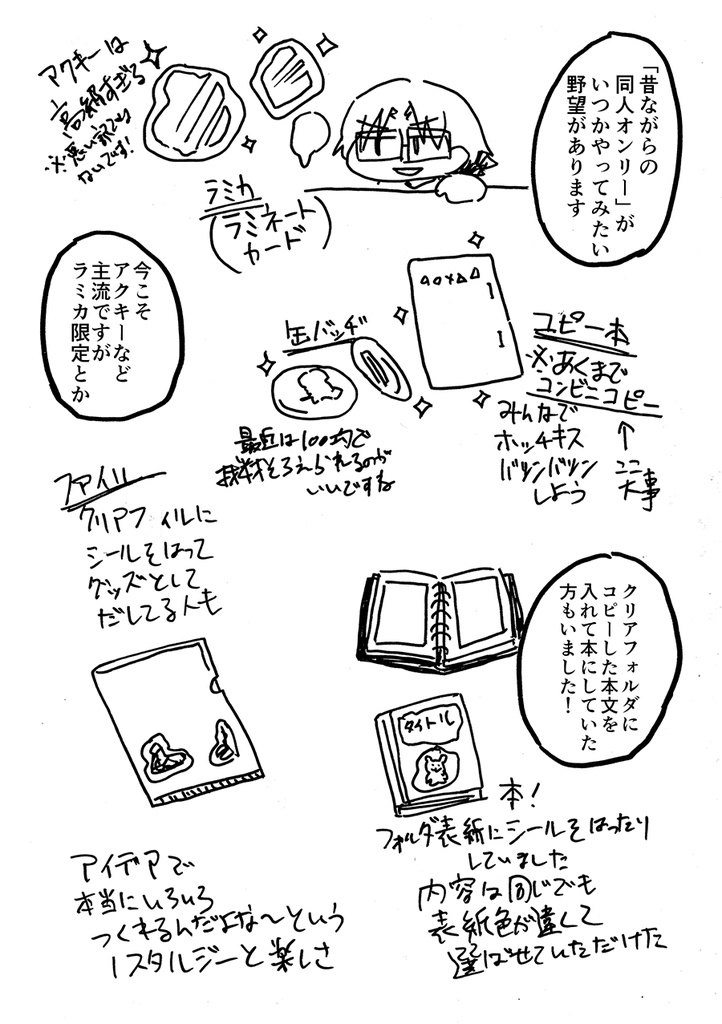 「昔ながらの
同人オンリー」が
いつかやってみたい
野望があります
アクキーは
高級すぎる
※悪い訳でも
ないです!
ラミカ
(ラミネート
カード)
今こそ
アクキーなど
主流ですが
ラミカ限定とか
缶バッヂ
最近は100均で
機材そろえられるのが
いいですね
コピー本
※あくまで
コンビニコピー
↑
ココ
大事
みんなで
ホッチキス
バツンバツン
しよう
ファイル
クリアファイルに
シールをはって
グッズとして
だしてる人も
クリアフォルダに
コピーした本文を
入れて本にしていた
方もいました!
タイトル
本!
フォルダ表紙にシールをはったり
していました
内容は同じでも
表紙色が違くて
選ばせていただけた
アイデアで
本当にいろいろ
つくれるんだよな〜という
ノスタルジーと楽しさ